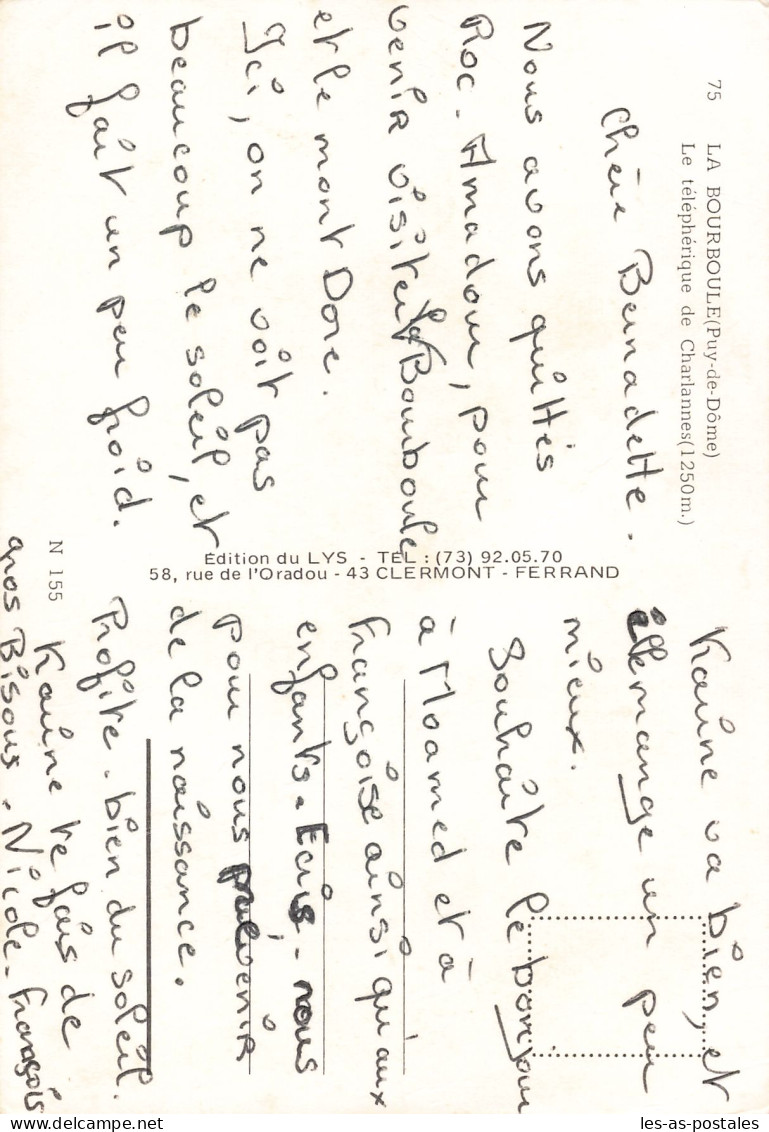 75 LA BOURBOULE(Puy-de-Dôme)
Le téléphérique de Charlannes(1250m.)
Chère Bernadette.
Nous avons quittés
Roc-Amadour, pour
venir visiter la Bourboule
et le mont Dore.
Ici, on ne voit pas
beaucoup le soleil, et
il fait un peu froid.
N 155
Édition du LYS - TEL : (73) 92.05.70
58, rue de l'Oradou - 43 CLERMONT - FERRAND
Karine va bien, et
elle mange un peu
mieux.
Souhaite le bonjour
à Moamed et à
Françoise ainsi qu'aux
enfants. Ecris-nous
pour nous prévenir
de la naissance.
Profite-bien du soleil.
Karine te fais de
gros Bisous. Nicole-François
les-as-postales